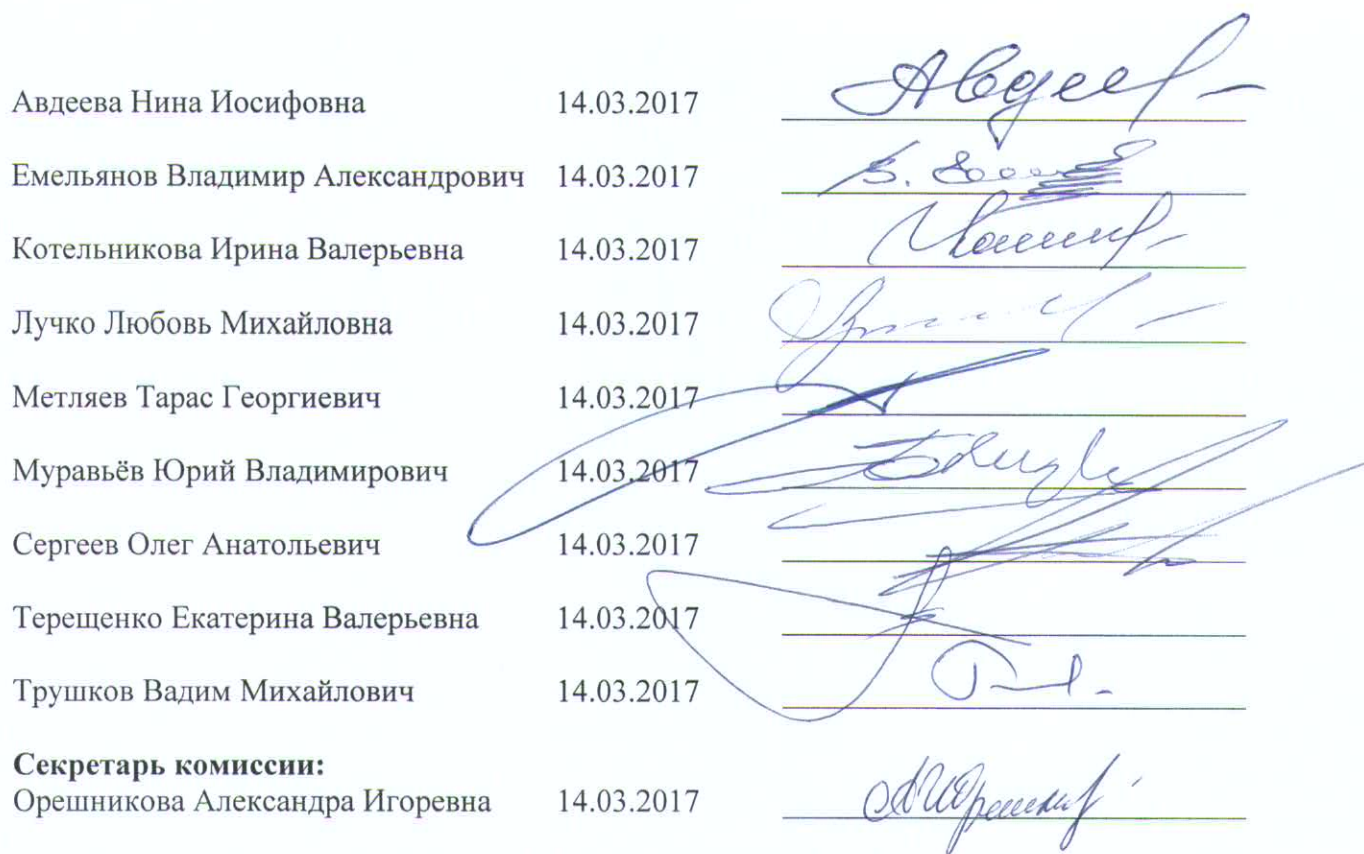 Авдеева Нина Иосифовна 14.03.2017 Авдеев
Емельянов Владимир Александрович 14.03.2017
Котельникова Ирина Валерьевна 14.03.2017
Лучко Любовь Михайловна 14.03.2017
Метляев Тарас Георгиевич 14.03.2017
Муравьёв Юрий Владимирович 14.03.2017
Сергеев Олег Анатольевич 14.03.2017
Терещенко Екатерина Валерьевна 14.03.2017
Трушков Вадим Михайлович 14.03.2017
Секретарь комиссии:
Орешникова Александра Игоревна 14.03.2017